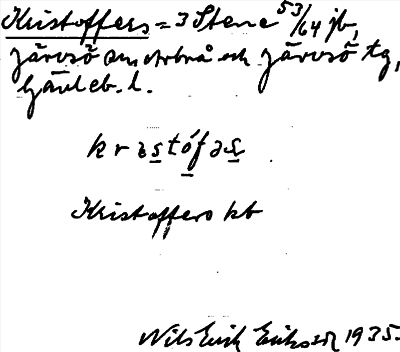 Kristoffers = 3 Stene 53/64 jb,
Järvsö sn, Arbrå och Järvsö tg,
Gävleb. l.
krəstófəs
Kristoffers kb
Nils Erik Eriksson 1935.